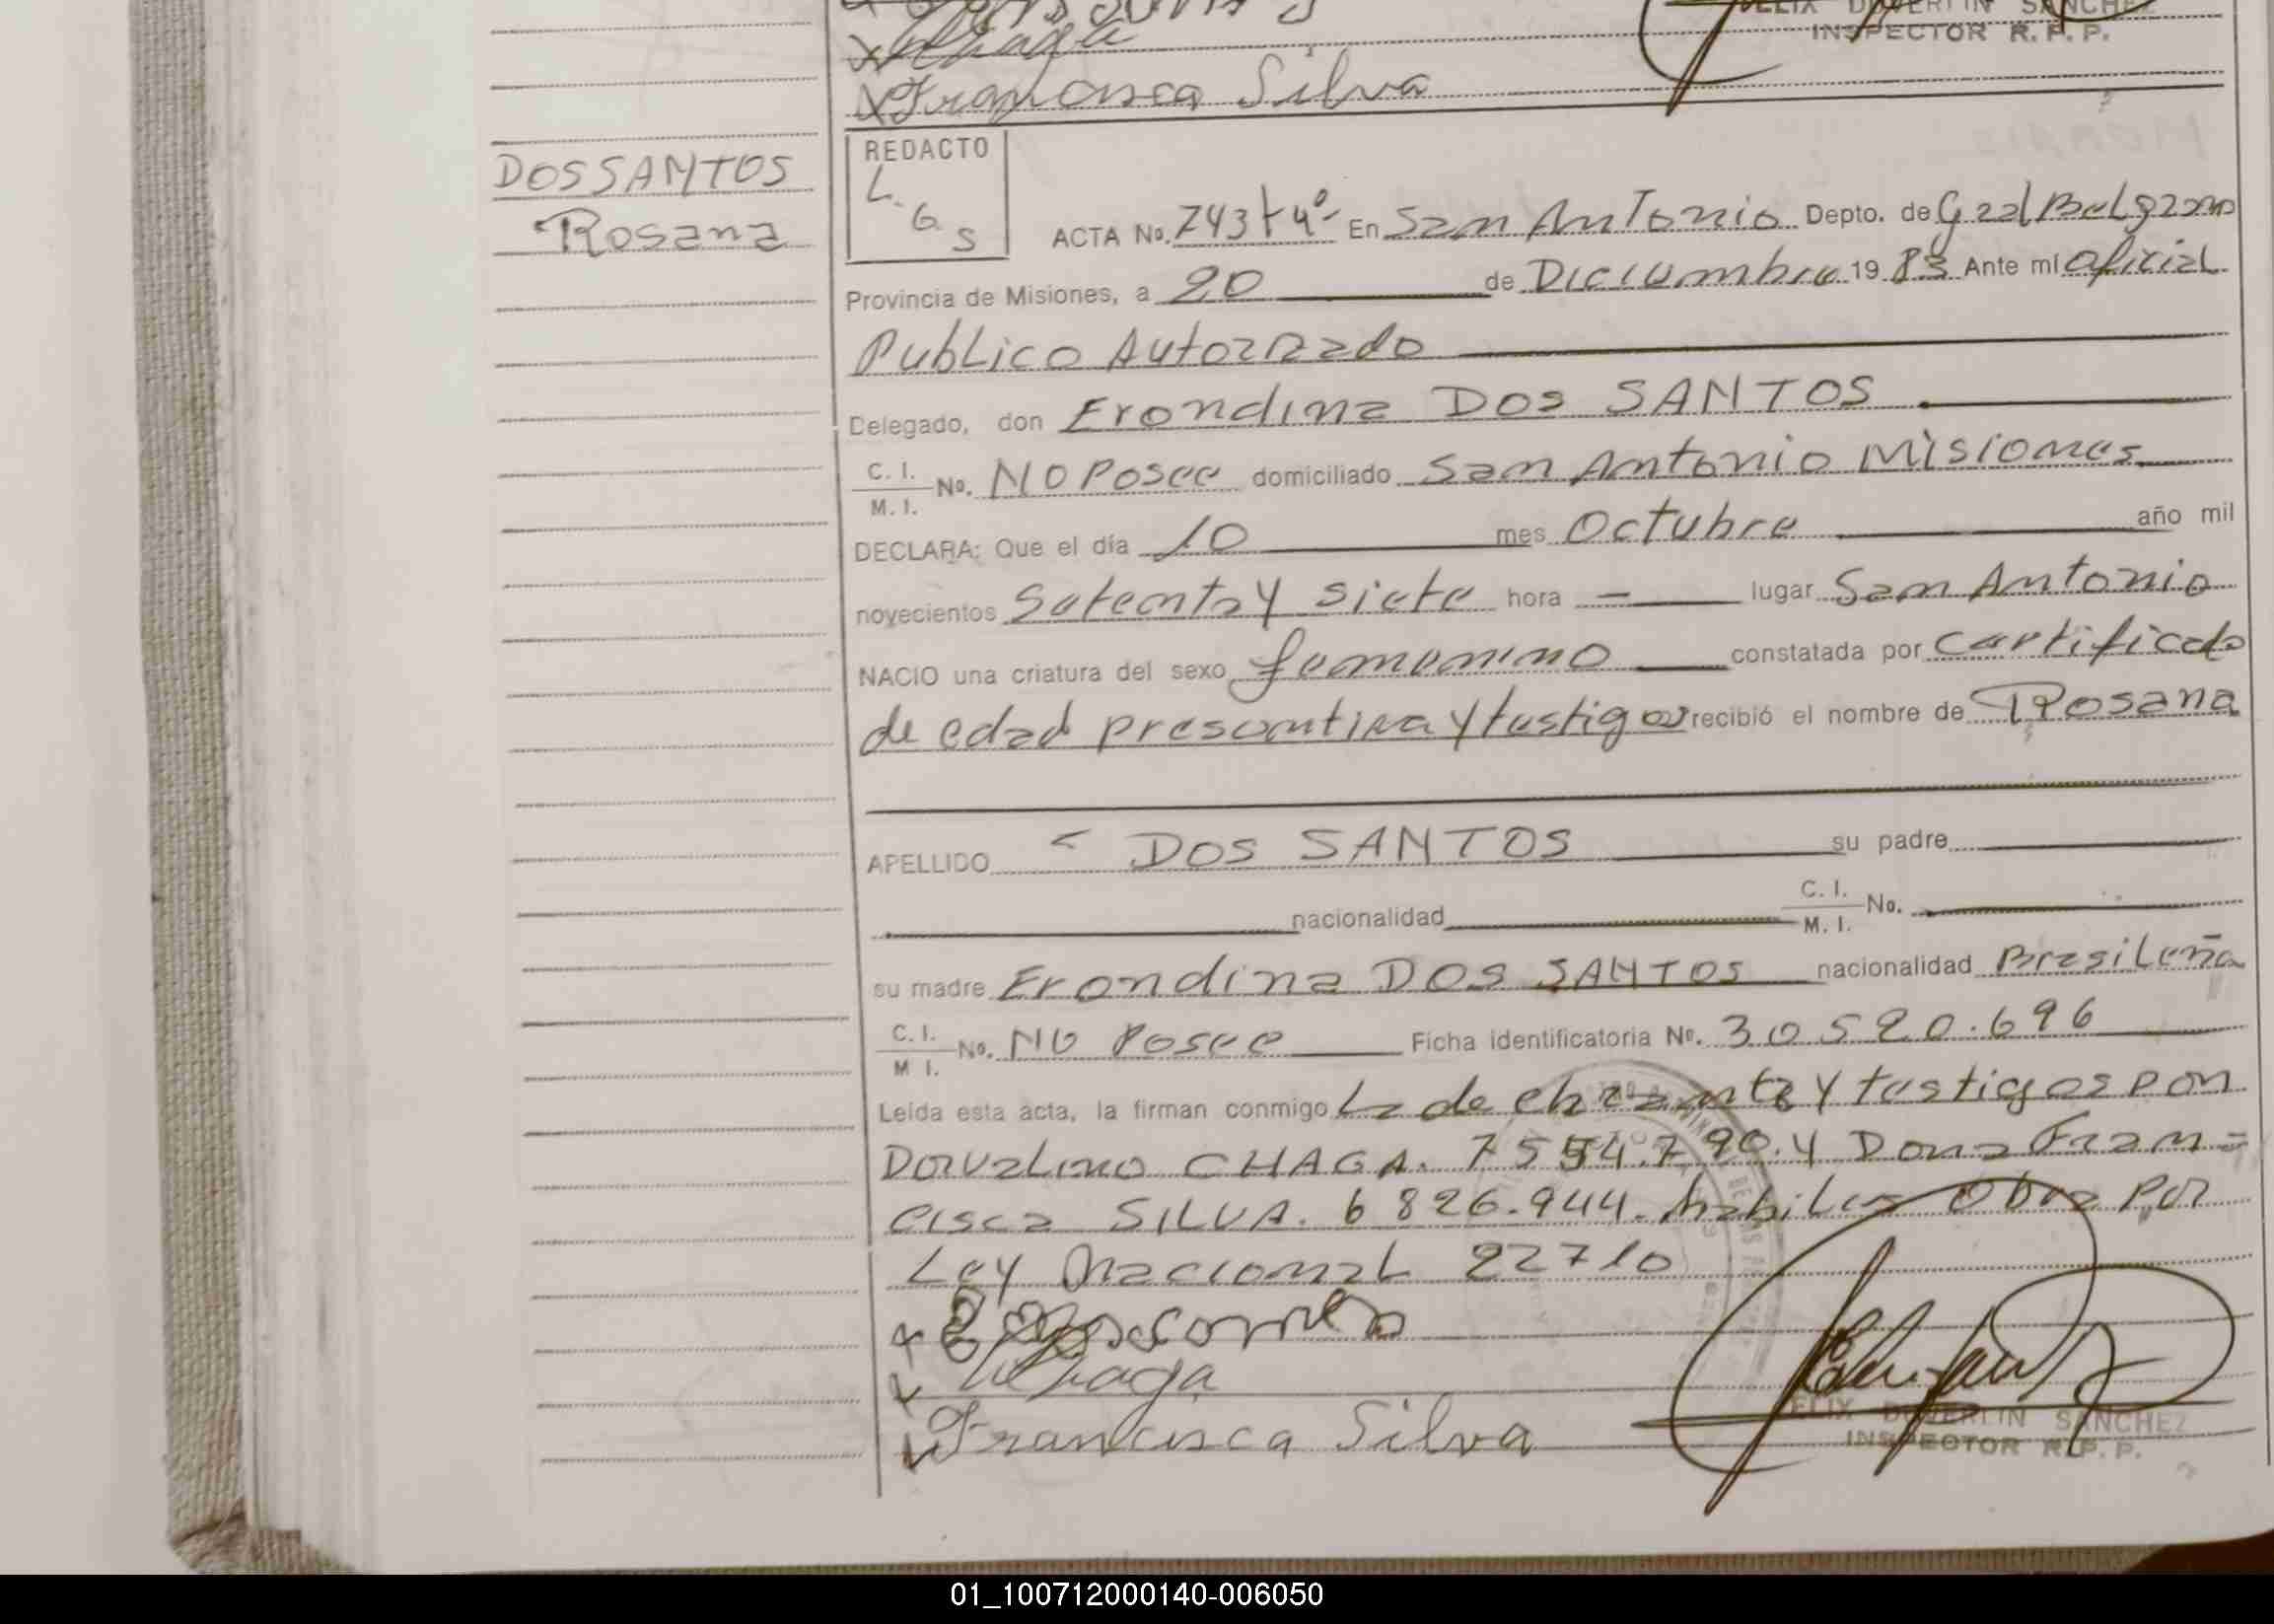 FELIX DUVERLIN SANCHEZ
INSPECTOR R. P. P.
Chaga
Francisca Silva
DOS SANTOS
Rosana
REDACTO
L. G S
ACTA No. 743 t 4º- En San Antonio Depto. de Gral Belgrano
Provincia de Misiones, a 20 de Diciembre 19 83 Ante mí oficial
Publico Autorizado
Delegado, don Erondina DOS SANTOS
C. I. / M. I. No. NO Posee domiciliado San Antonio Misiones
DECLARA: Que el día 10 mes Octubre año mil
novecientos Setenta y siete hora — lugar San Antonio
NACIO una criatura del sexo femenino constatada por certificado
de edad presentiva y testigos recibió el nombre de Rosana
APELLIDO DOS SANTOS su padre
nacionalidad C. I. / M. I. No.
su madre Erondina DOS SANTOS nacionalidad Brasileña
C. I. / M I. No. NO Posee Ficha identificatoria No. 30520.696
Leída esta acta, la firman conmigo La declarante y testigos Don
Dorvalino CHAGA. 7554.790. y Dona Fran-
cisca SILVA. 6 826.944. habiles obra por
Ley Nacional 22710
Chaga
Francisca Silva
FELIX DUVERLIN SANCHEZ
INSPECTOR R. P. P.
01_100712000140-006050